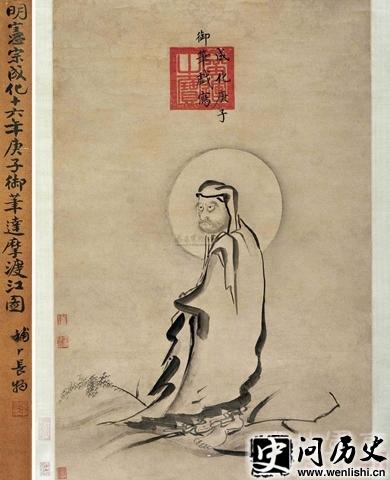 明憲宗成化十六年庚子御筆達摩渡江圖
成化庚子
御筆戲寫
问历史
www.wenlishi.cn